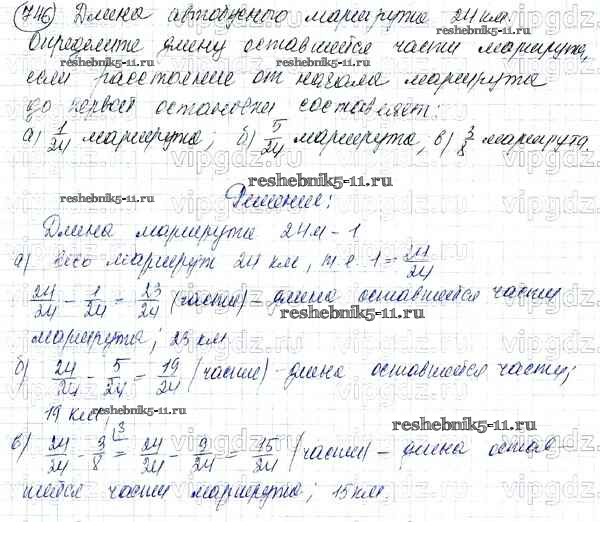 746 Длина автобусного маршрута 24 км.
Определите длину оставшейся части маршрута,
если расстояние от начала маршрута
до первой остановки составляет:
а) 1/24 маршрута; б) 5/24 маршрута, в) 3/8 маршрута.
reshebnik5-11.ru
Решение:
Длина маршрута 24 м - 1
а) Весь маршрут 24 км, т.е. 1 = 24/24
24/24 - 1/24 = 23/24 (части) - длина оставшейся части
reshebnik5-11.ru
маршрута; 23 км
б) 24/24 - 5/24 = 19/24 (части) - длина оставшейся части;
19 км;
reshebnik5-11.ru
в) 24/24 - 3/8 = 24/24 - 9/24 = 15/24 (части) - длина остав
шейся части маршрута; 15 км.